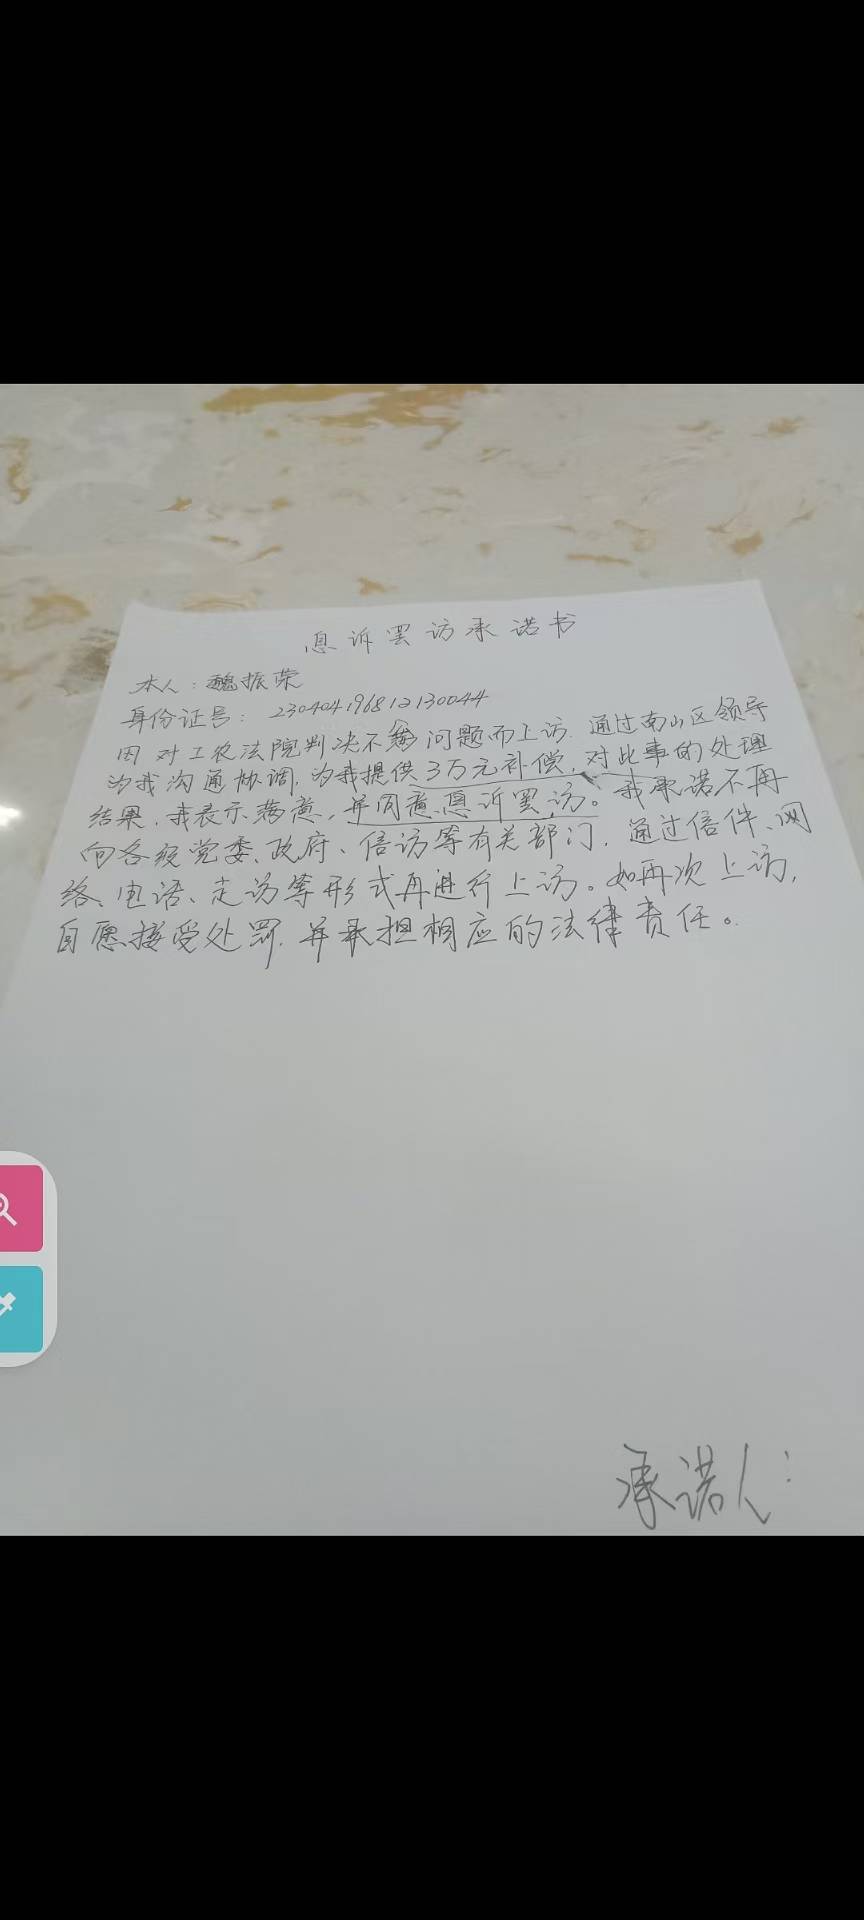 息诉罢访承诺书
本人：魏振荣
身份证号：230404196812130044
因对工农法院判决不 问题而上访.通过南山区领导
为我沟通协调,为我提供3万元补偿,对此事的处理
结果,我表示满意,并同意息诉罢访。我承诺不再
向各级党委、政府、信访等有关部门,通过信件、网
络、电话、走访等形式再进行上访。如再次上访,
自愿接受处罚,并承担相应的法律责任。
承诺人: